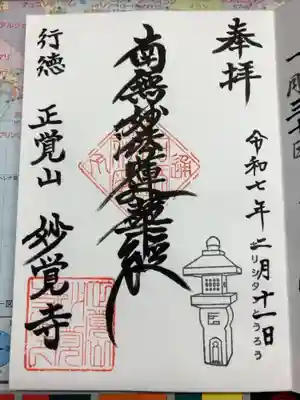 奉拝
令和七年二月十一日
キリシタンとうろう
南無妙法蓮華経
行徳 正覚山 妙覚寺